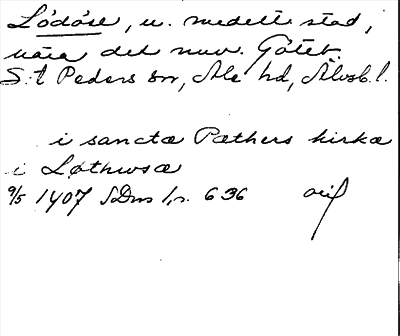 Lödöse, u. medeltidsstad,
nära det nuv. Göteb.
S:t Peders sn, Ale hd, Älvsb. l.
i sancta Pæthers kirkæ
i Løthwsæ
9/5 1407 SDns 1, s. 636 orig